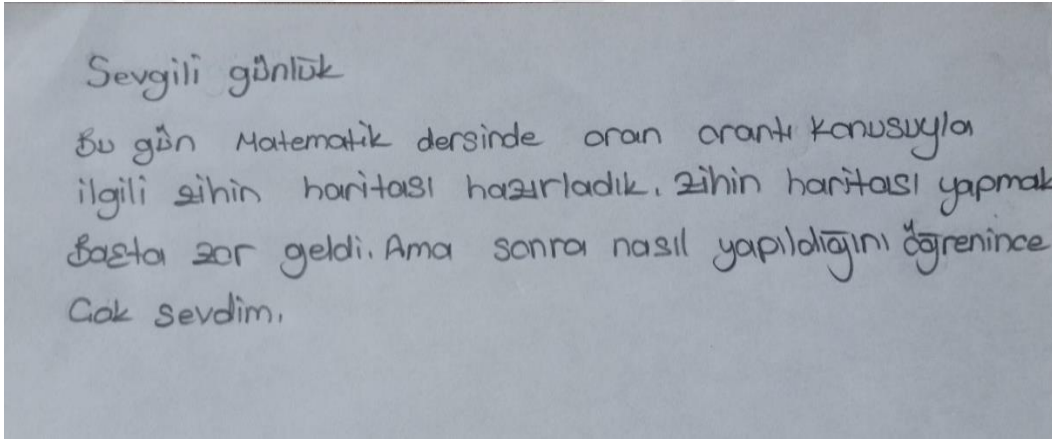 Sevgili günlük
Bu gün Matematik dersinde oran orantı konusuyla
ilgili zihin haritası hazırladık. zihin haritası yapmak
Başta zor geldi. Ama sonra nasıl yapıldığını öğrenince
Çok sevdim.